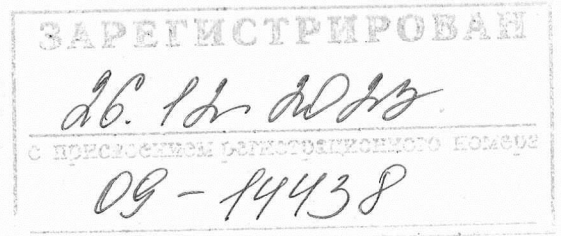 ЗАРЕГИСТРИРОВАН
26.12.2023
с присвоением регистрационного номера
09-14438